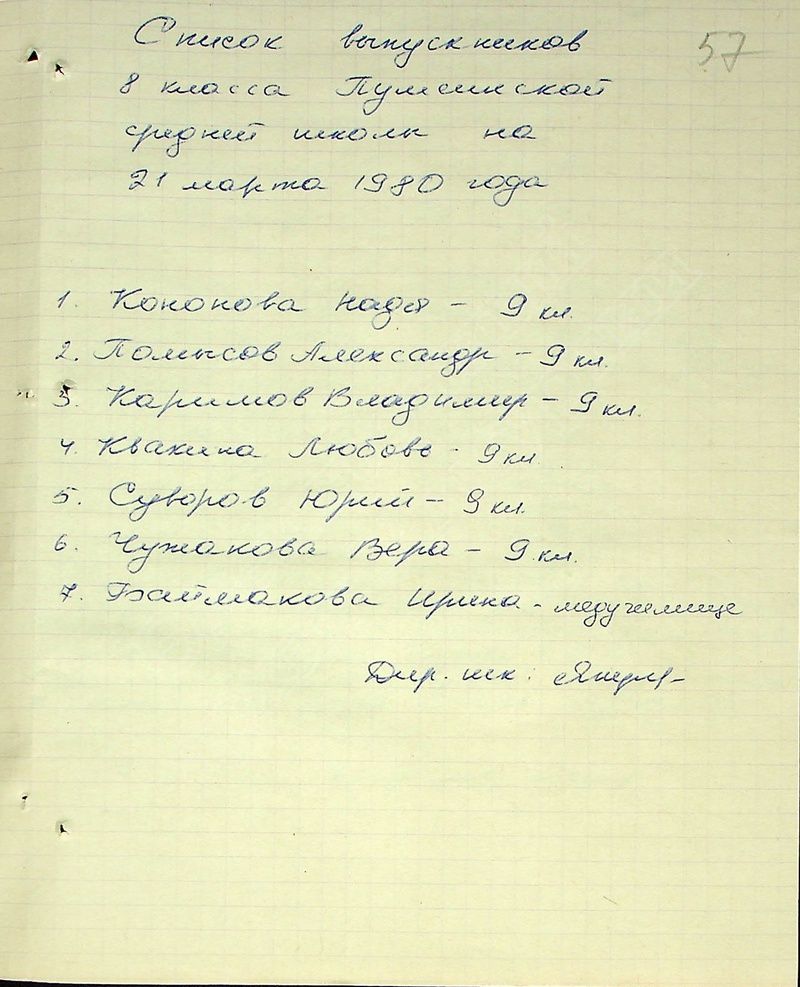 57
Список выпускников
8 класса Пумсинской
средней школы на
21 марта 1980 года
1. Кононова Надя - 9 кл.
2. Помысов Александр - 9 кл.
3. Каримов Владимир - 9 кл.
4. Квакина Любовь - 9 кл.
5. Суворов Юрий - 9 кл.
6. Чужакова Вера - 9 кл.
7. Баймакова Ирина - медучилище
Дир. шк: